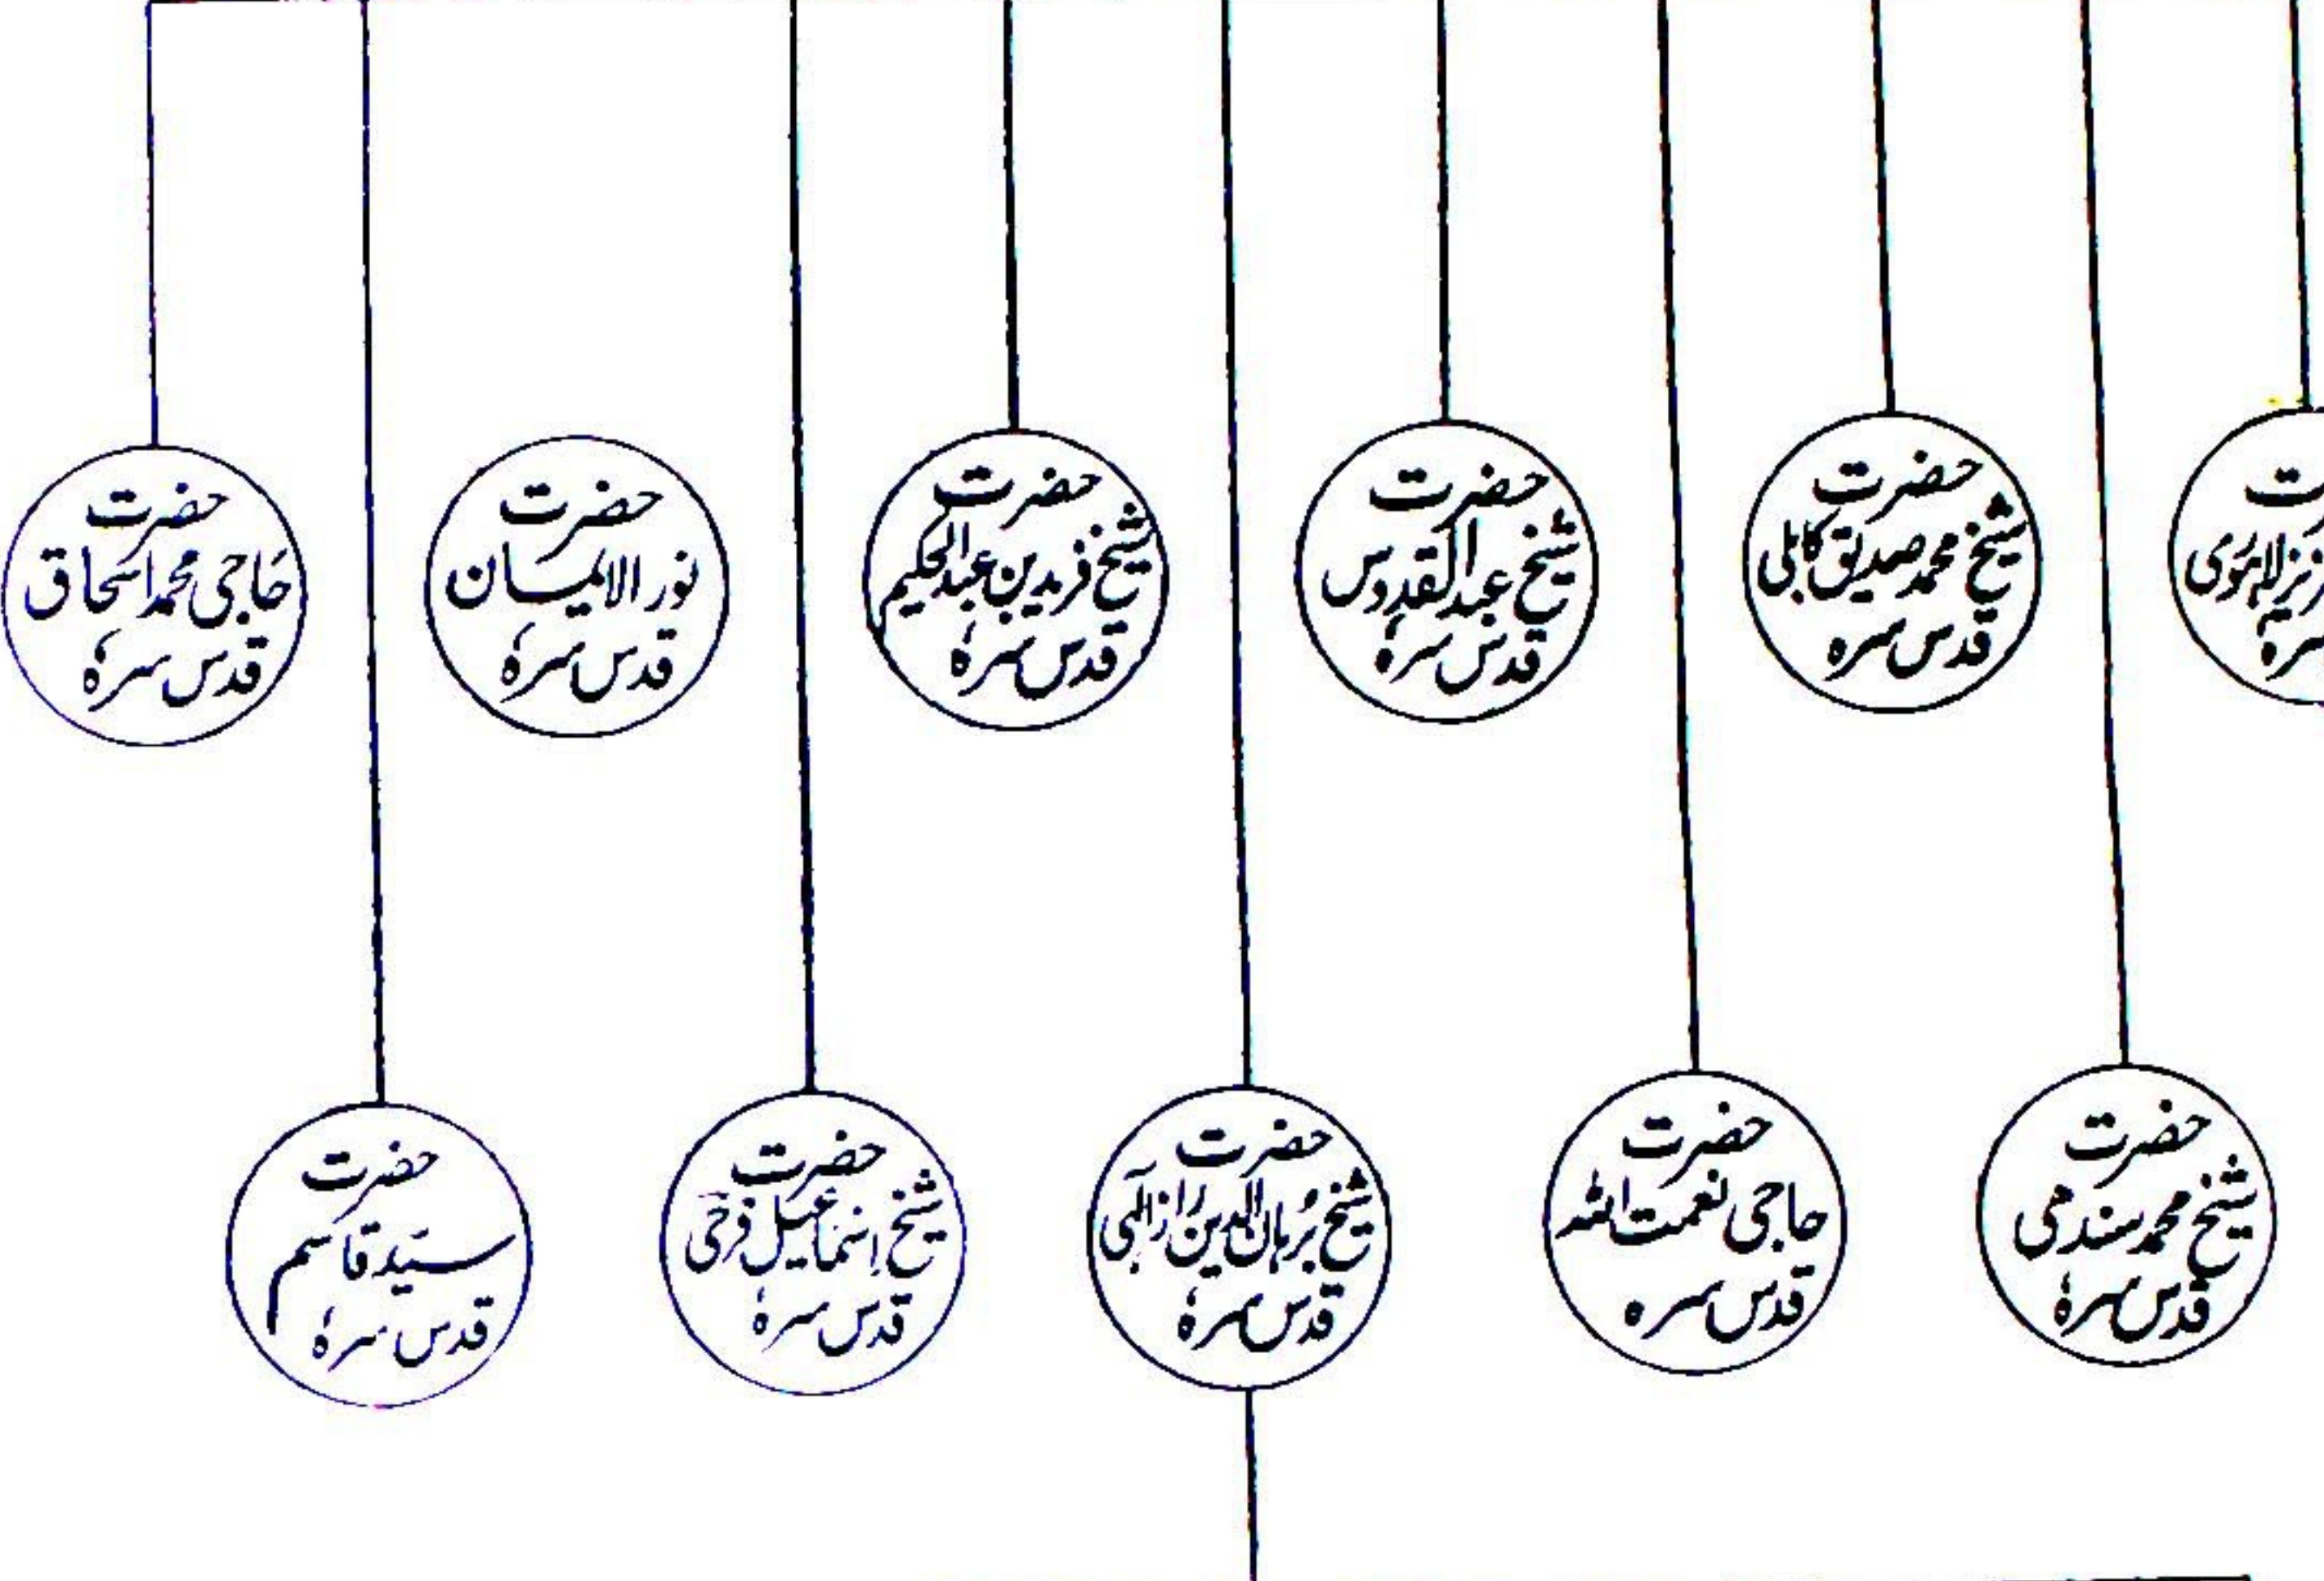 حضرت
شیخ محمد صدیق کابلی
قدس سرہ
حضرت
شیخ عبدالقدوس
قدس سرہٗ
حضرت
شیخ فرید بن عبدالحکیم
قدس سرہٗ
حضرت
نور الایمان
قدس سرہٗ
حضرت
حاجی محمد اسحاق
قدس سرہٗ
حضرت
شیخ محمد سندھی
قدس سرہٗ
حضرت
حاجی نعمت اللہ
قدس سرہ
حضرت
شیخ برہان الدین راز الٰہی
قدس سرہٗ
حضرت
شیخ اسماعیل فرحی
قدس سرہٗ
حضرت
سید قاسم
قدس سرہٗ